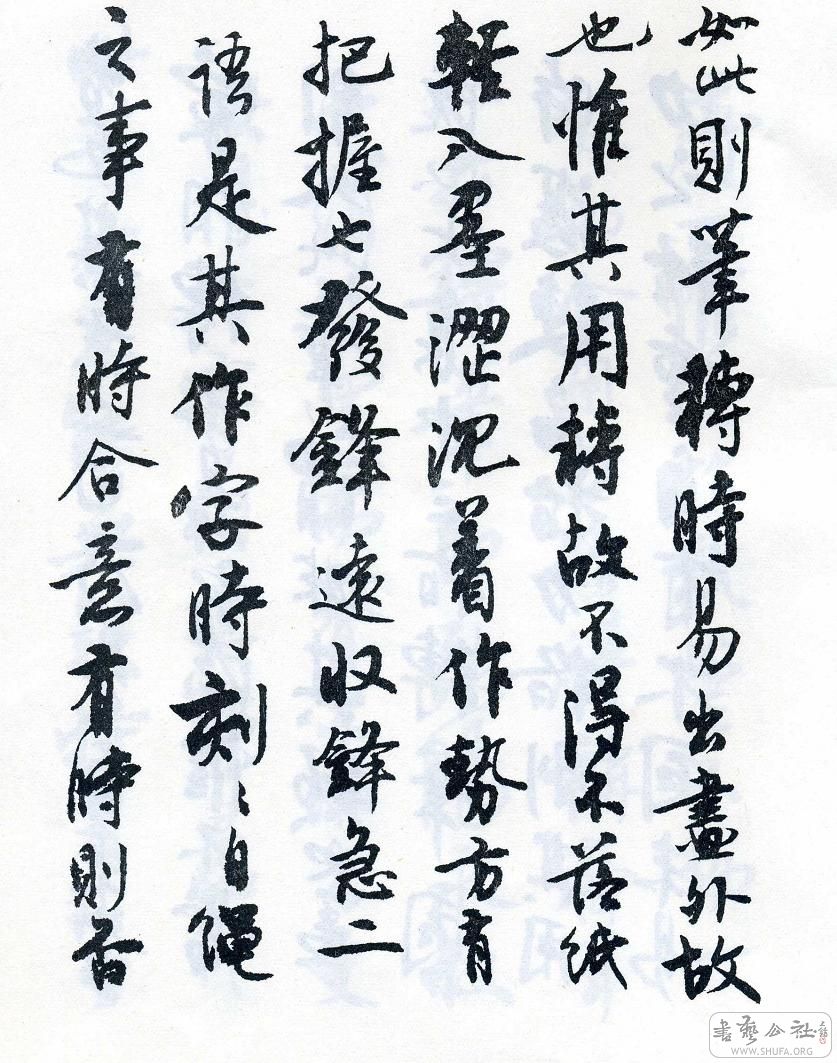 如此則筆轉時易出畫外故
也惟其用轉故不得不落紙
輕入墨澀沉着作勢方有
把握七發鋒遠收鋒急二
語是其作字時刻〻自繩
之事有時合意有時則否
書藝公社
WWW.SHUFA.ORG